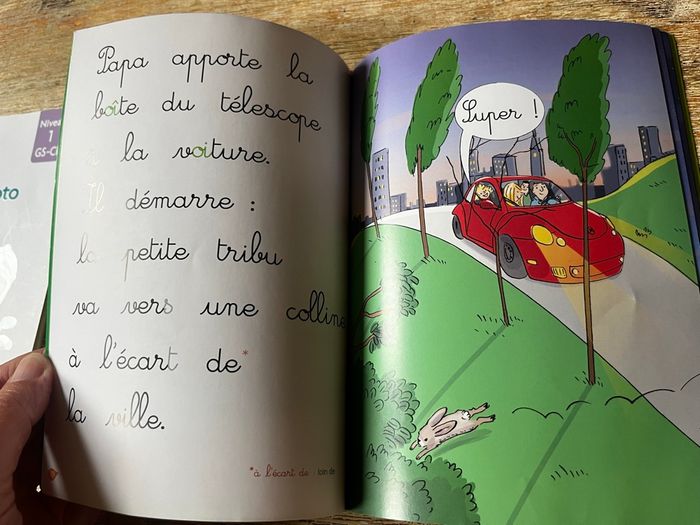 Papa apporte la
boîte du télescope
à la voiture.
Il démarre :
la petite tribu
va vers une colline
à l'écart de*
la ville.
*à l'écart de : loin de
Super !
1
GS-CP